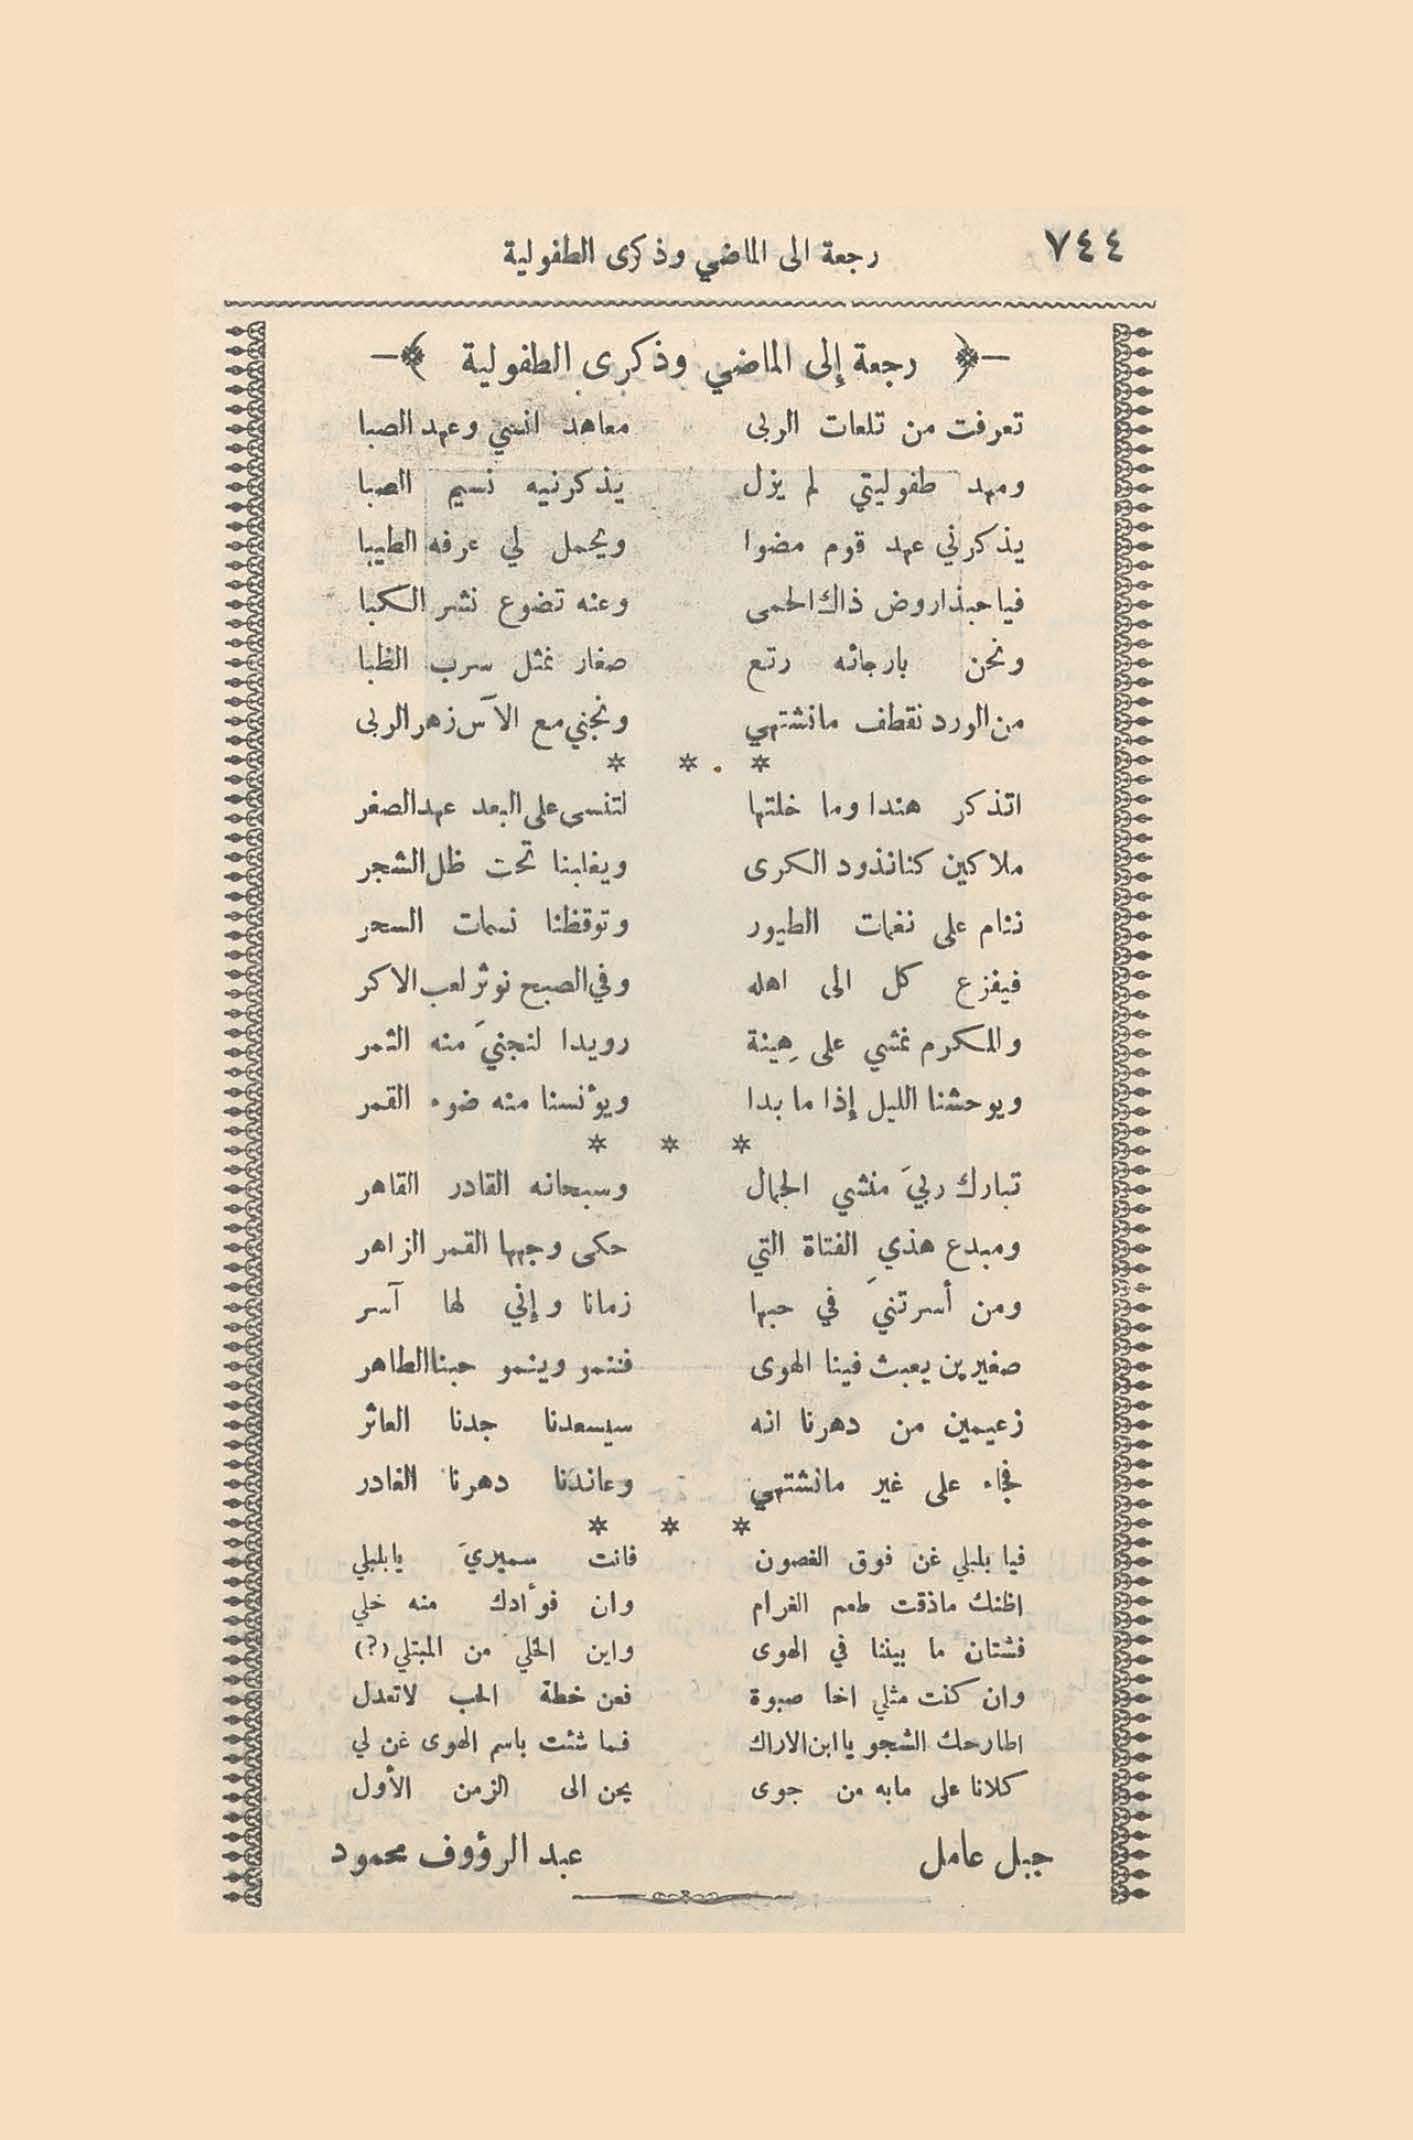 ٧٤٤ رجعة الى الماضي وذكرى الطفولية
رجعة إلى الماضي وذكرى الطفولية
تعرفت من تلعات الربى معاهد انسي وعهد الصبا
ومهد طفوليتي لم يزل يذكرنيه نسيم الصبا
يذكرني عهد قوم مضوا ويحمل لي عرفه الطيبا
فيا حبذا روض ذاك الحمى وعنه تضوع نشر الكبا
ونحن بارجائه رتع صغار نمثل سرب الظبا
من الورد نقطف مانشتهي ونجني مع الآس زهر الربى
* * *
اتذكر هندا وما خلتها لتنسى على البعد عهد الصغر
ملاكين كنا نذود الكرى ويغلبنا تحت ظل الشجر
ننام على نغمات الطيور وتوقظنا نسمات السحر
فيفزع كل الى اهله وفي الصبح نوثر لعب الاكر
وللكرم نمشي على هِينة رويدا لنجنيَ منه الثمر
ويوحشنا الليل إذا ما بدا ويؤنسنا منه ضوء القمر
* * *
تبارك ربيَ منشي الجمال وسبحانه القادر القاهر
ومبدع هذي الفتاة التي حكى وجهها القمر الزاهر
ومن أسرتنيَ في حبها زمانا وإني لها آسر
صغيرين يعبث فينا الهوى فننمو وينمو حبنا الطاهر
زعيمين من دهرنا انه سيسعدنا جدنا العاثر
فجاء على غير مانشتهي وعاندَنا دهرنا الغادر
* * *
فيا بلبلي غن فوق الغصون فانت سميريَ يابلبلي
اظنك ماذقت طعم الغرام وان فوأدك منه خلي
فشتان ما بيننا في الهوى واين الخلي من المبتلي (?)
وان كنت مثلي اخا صبوة فعن خطة الحب لاتعدل
اطارحك الشجو يا ابن الاراك فما شئت باسم الهوى غن لي
كلانا على مابه من جوى يحن الى الزمن الأول
جبل عامل عبد الرؤوف محمود